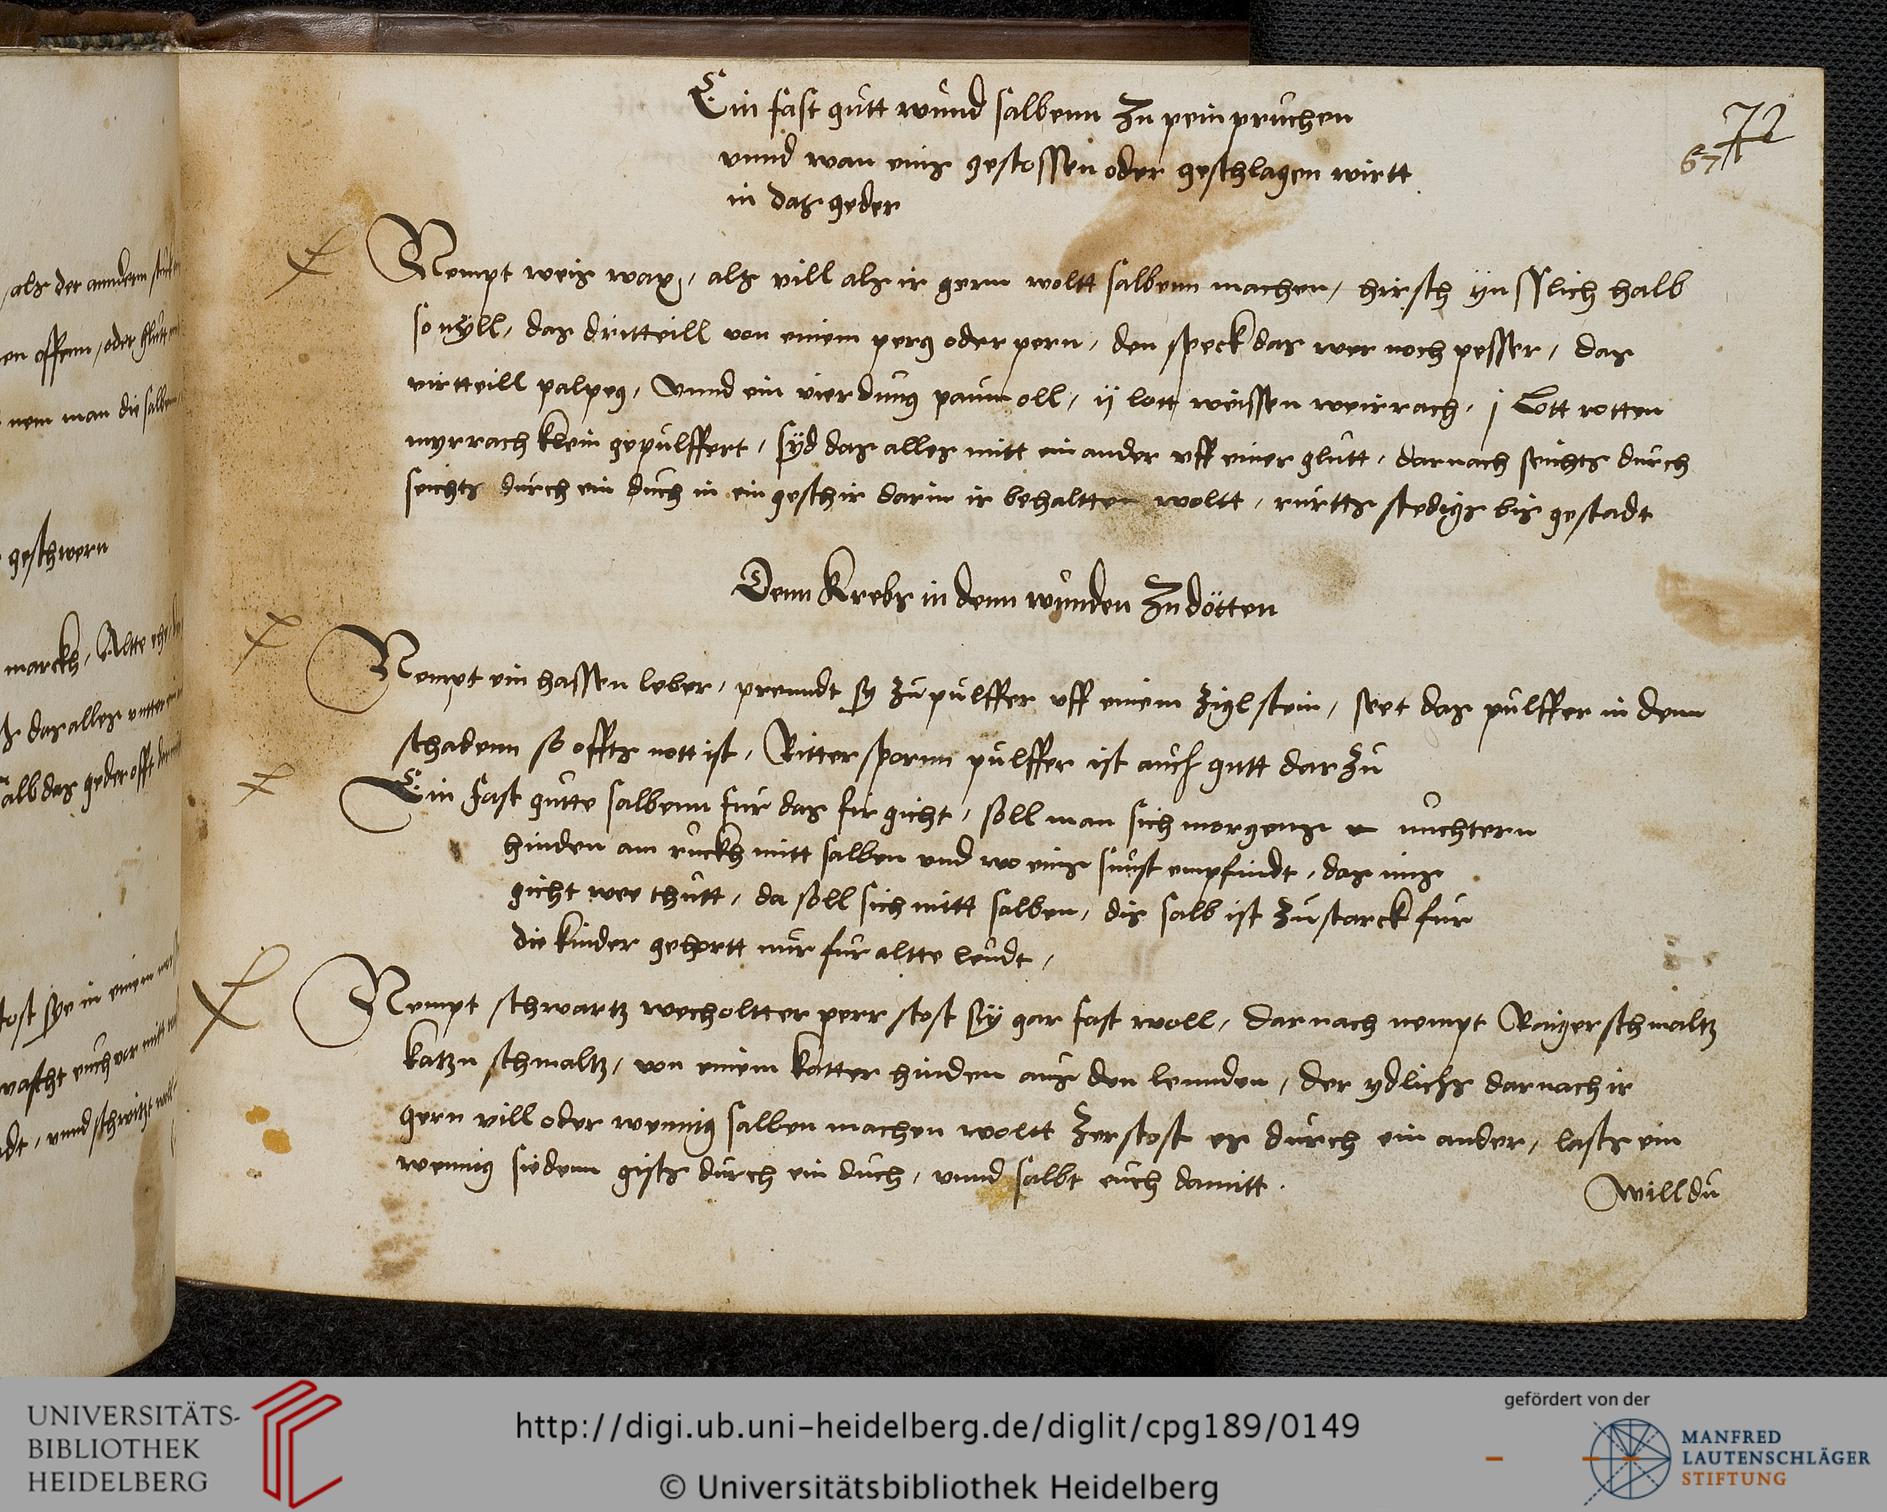 Ein fast gutt wund salbenn Zu pein pruchen
vnnd wan eins gestossen oder geschlagen wirtt
in das geder
72
67
Nempt weis wax, als vill als ir gern woltt salbenn machen, hirsch ÿnsslich halb
so vÿll, das dritteill von einem perg oder pern, den speck das wer noch pesser, das
virtteill palpeg, Vnnd ein vierdung paum oll, ij lott weissen weirrach, j Lott rotten
myrrach klein gepulffert, sÿd das alles mitt ein ander vff einer glutt, darnach seichts durch
seichts durch ein duch in ein geschir darin ir behaltten woltt, rurtts stedigs bis gestadt
Denn Krebs in denn wunden Zu dötten
Nempt ein hassen leber, prenndt sy zu pulffer vff einem Ziglstein, seet das pulffer in denn
schadenn so offts nott ist, Ritterspornn pulffer ist auch gutt dar Zu
Ein fast gutte salbenn fur das fir gicht, soll man sich morgens nuchtern
hinden am ruckh mitt salben vnd wo eins sunst empfindt, das ims
gicht wee thutt, da soll sich mitt salben, dis salb ist zu starck fur
die kinder gehortt nur fur altte leudt,
Nempt schwartz wecholtter perr stost sÿ gar fast woll, darnach nempt Raigerschmaltz
katzn schmaltz, von einem katter hinden aus den lennden, der ydlichs darnach ir
gern vill oder wennig salben machen woltt Zerstost es durch ein ander, lasts ein
wennig siedenn gists durch ein duch, vnnd salbt euch damitt.
Willdu
als der anndern
en offenn, oder
nem man die salben
geschwern
marckh, Altte
das alles vntter
salb das geder offt
stost sÿe in einem
wascht euch vor mitt
vnnd schwitzt
UNIVERSITÄTS-
BIBLIOTHEK
HEIDELBERG
http://digi.ub.uni-heidelberg.de/diglit/cpg189/0149
© Universitätsbibliothek Heidelberg
gefördert von der
MANFRED
LAUTENSCHLÄGER
STIFTUNG